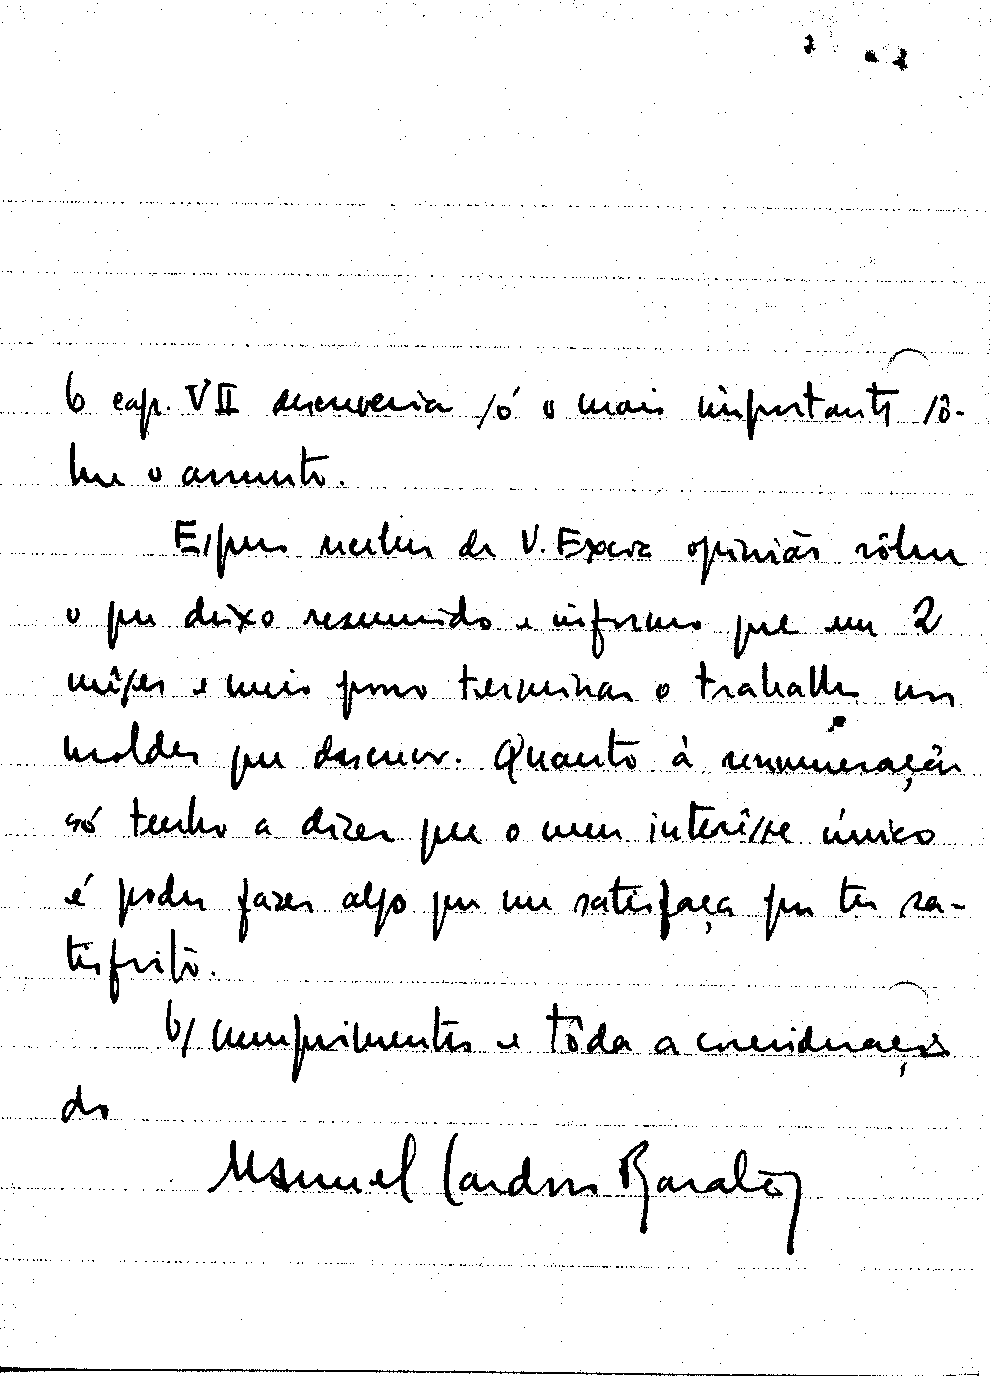 O cap. VII descreveria só o mais importante sô-
bre o assunto.
Espero receber de V. Excia opinião sôbre
o que deixo resumido e informo que em 2
mêses e meio posso terminar o trabalho nos
moldes que descrevo. Quanto à remuneração
só tenho a dizer que o meu interêsse único
é poder fazer algo que me satisfaça por ter sa-
tisfeito.
C/ cumprimentos e tôda a consideração
do
Manuel Cardoso